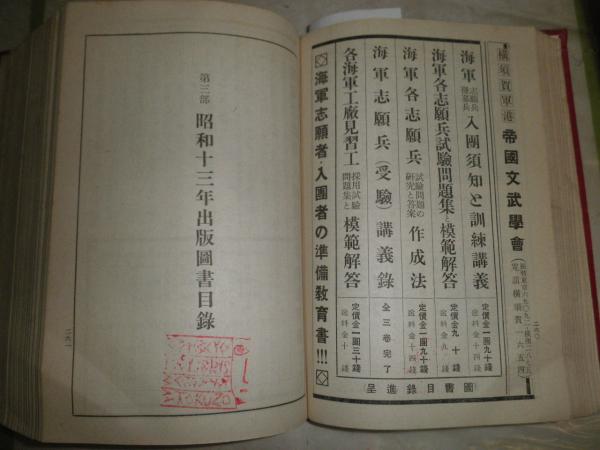 横須賀軍港 帝國文武學會
海軍 志願兵 徴募兵 入團須知と訓練講義 定價金一圓九十錢
海軍各志願兵試驗問題集と模範解答 定價金九十錢
海軍各志願兵 試驗問題の研究と答案 作成法 定價金一圓九十錢 送料金十四錢
海軍志願兵(受驗)講義錄 全三卷完了
各海軍工廠見習工 採用試驗問題集と 模範解答 定價金一圓三十錢 送料金十錢
海軍志願者・入團者の準備敎育書!!!
圖書目錄進呈
二六〇
第三部 昭和十三年出版圖書目錄
二六一